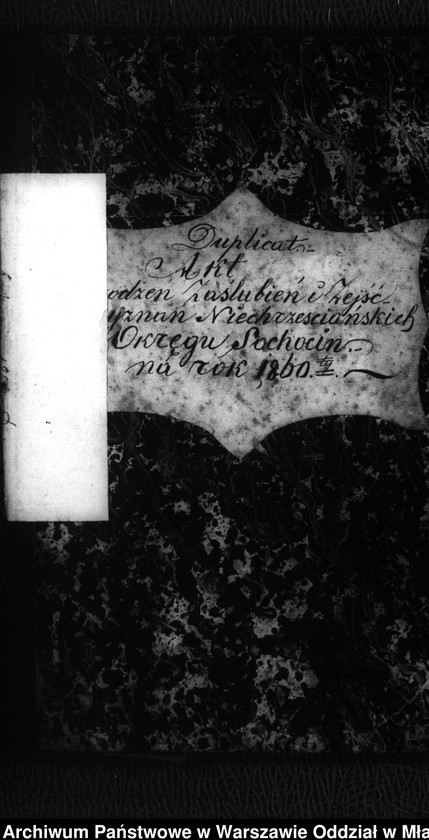 Duplicat.
Akt
odzen Zaślubień i Zejść
yznan Niechrześciańskich
Okręgu Sochocin
na rok 1860.
Archiwum Państwowe w Warszawie Oddział w Mła